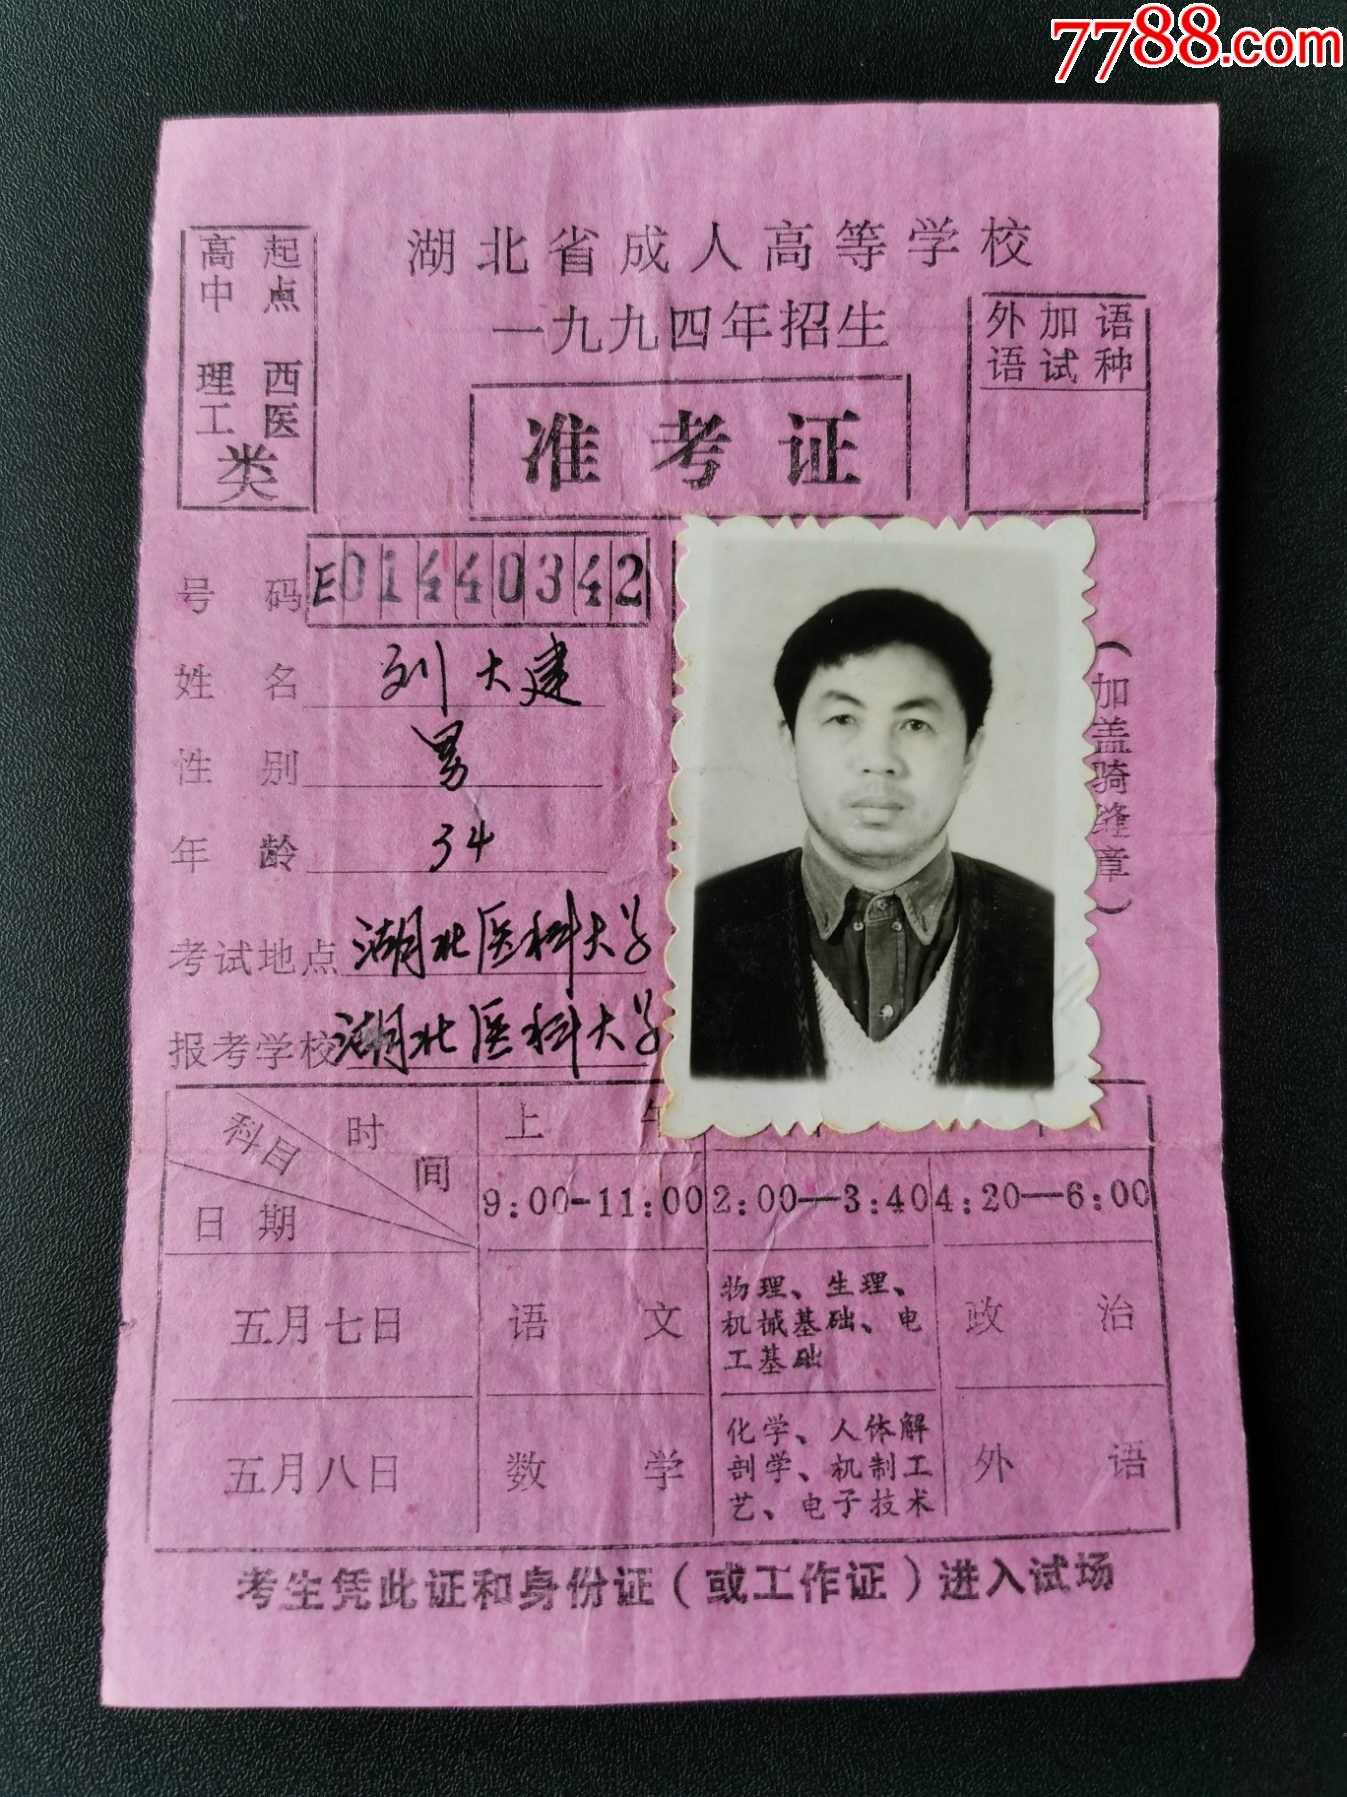 7788.com
湖北省成人高等学校
一九九四年招生
准考证
高中 起点
理工 西医
类
外语 加试 语种
号码 E01440342
姓名 刘大建
性别 男
年龄 34
考试地点 湖北医科大学
报考学校 湖北医科大学
(加盖骑缝章)
科目 时间 日期
上午
9:00-11:00 2:00—3:40 4:20—6:00
五月七日 语文 物理、生理、机械基础、电工基础 政治
五月八日 数学 化学、人体解剖学、机制工艺、电子技术 外语
考生凭此证和身份证(或工作证)进入试场